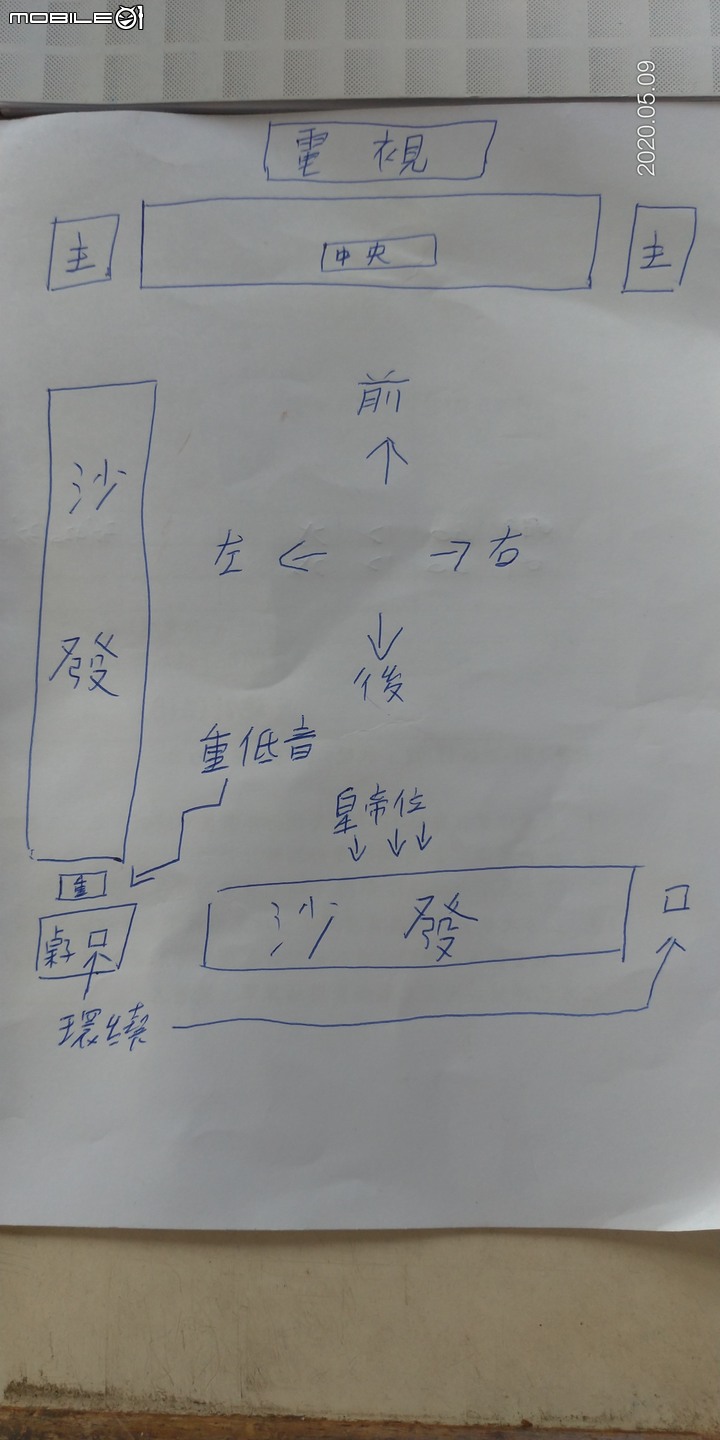 MOBILE01
2020.05.09
電視
主
中央
主
前
↑
左 ← → 右
↓
後
沙發
重低音
皇帝位
↓ ↓ ↓
重
沙發
桌子
環繞